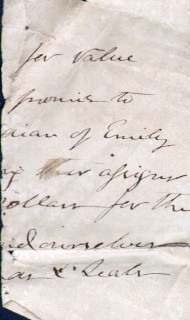 for value
promis to
dian of Emily
their assigns
ollars for the
ourselves
& Seals